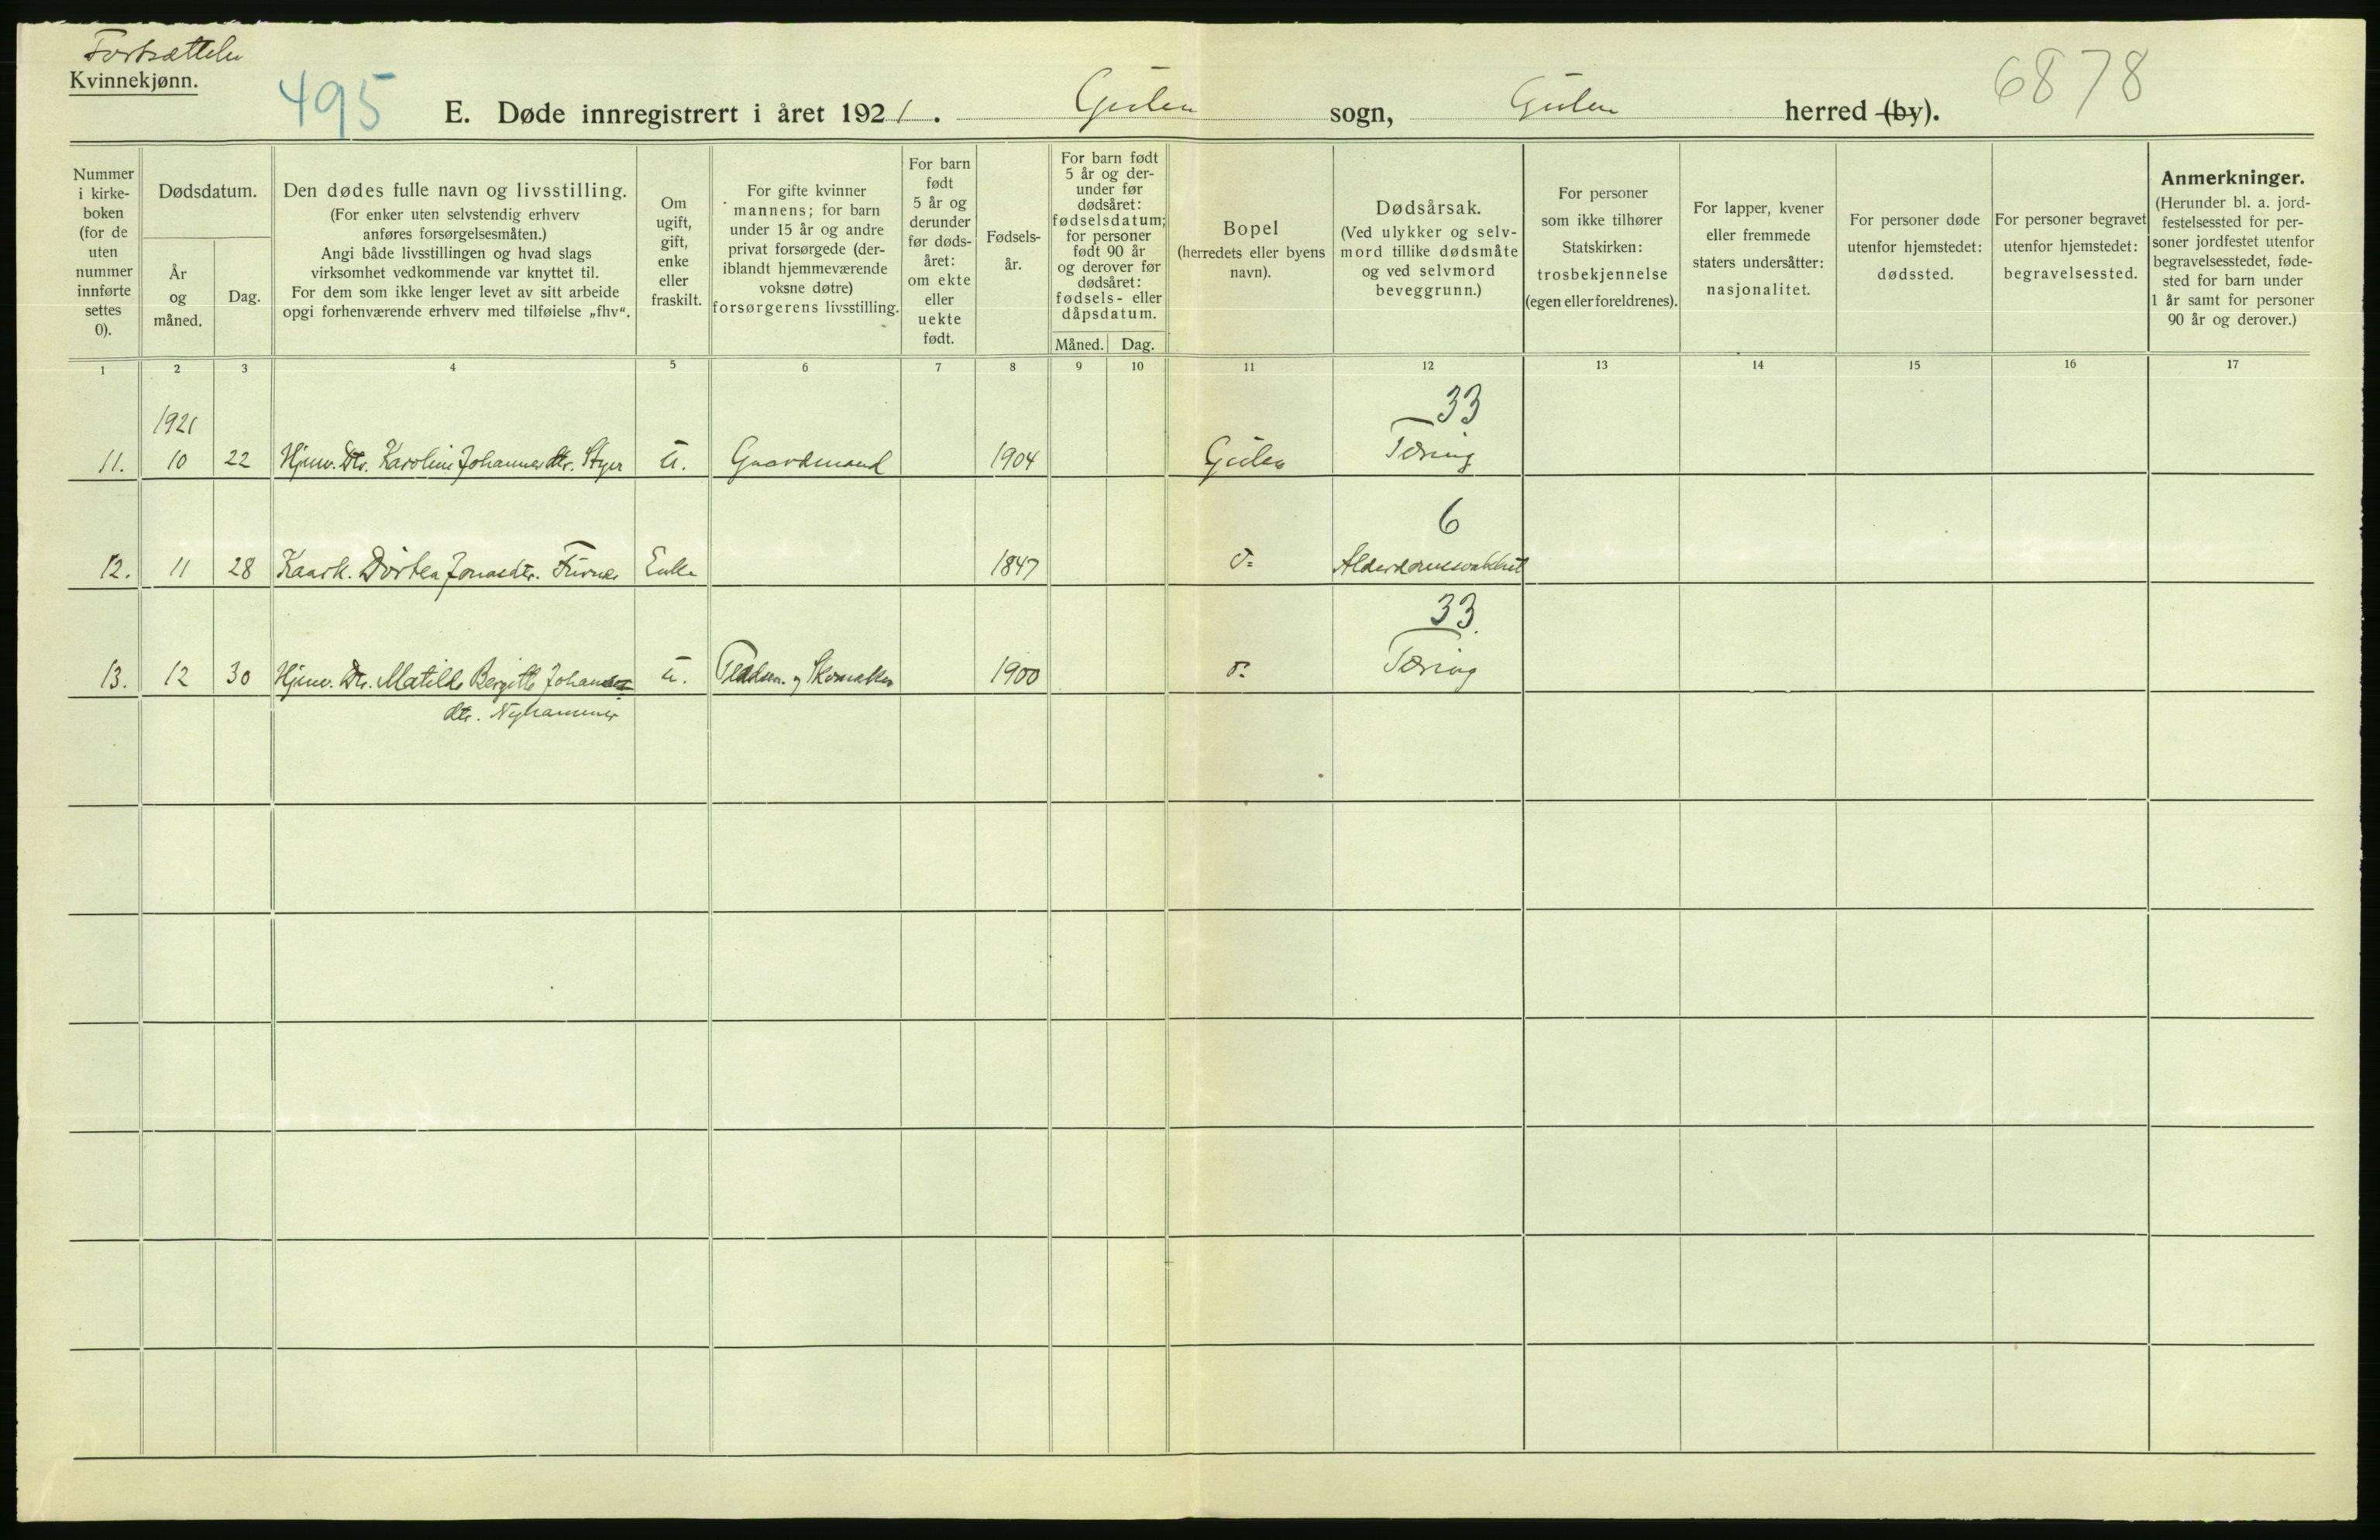 Fortsættelse
Kvinnekjønn.
495
E. Døde innregistrert i året 1921. Gulen sogn, Gulen herred (by).
6878
Nummer
i kirke-
boken
(for de
uten
nummer
innførte
settes
0).
Dødsdatum.
År
og
måned.
Dag.
Den dødes fulle navn og livsstilling.
(For enker uten selvstendig erhverv
anføres forsørgelsesmåten.)
Angi både livsstillingen og hvad slags
virksomhet vedkommende var knyttet til.
For dem som ikke lenger levet av sitt arbeide
opgi forhenværende erhverv med tilføielse „fhv“.
Om
ugift,
gift,
enke
eller
fraskilt.
For gifte kvinner
mannens; for barn
under 15 år og andre
privat forsørgede (der-
iblandt hjemmeværende
voksne døtre)
forsørgerens livsstilling.
For barn
født
5 år og
derunder
før døds-
året:
om ekte
eller
uekte
født.
Fødsels-
år.
For barn født
5 år og der-
under før
dødsåret:
fødselsdatum;
for personer
født 90 år
og derover før
dødsåret:
fødsels- eller
dåpsdatum.
Måned. Dag.
Bopel
(herredets eller byens
navn).
Dødsårsak.
(Ved ulykker og selv-
mord tillike dødsmåte
og ved selvmord
beveggrunn.)
For personer
som ikke tilhører
Statskirken:
trosbekjennelse
(egen eller foreldrenes).
For lapper, kvener
eller fremmede
staters undersåtter:
nasjonalitet.
For personer døde
utenfor hjemstedet:
dødssted.
For personer begravet
utenfor hjemstedet:
begravelsessted.
Anmerkninger.
(Herunder bl. a. jord-
festelsessted for per-
soner jordfestet utenfor
begravelsesstedet, føde-
sted for barn under
1 år samt for personer
90 år og derover.)
1 2 3 4 5 6 7 8 9 10 11 12 13 14 15 16 17
1921
33
11. 10 22 Hjemv. Dtr. Karoline Johannesdtr. Styer u. Gaardmand 1904 Gulen Tæring
6
12. 11 28 Kaark. Dortea Jonasdtr. Furnes Enke 1847 d= Alderdomssvakhet
33.
13. 12 30 Hjemv. Dtr. Matilde Bergitte Johannes u. Pladsm. og Skomaker 1900 d= Tæring
dtr. Nyhammer